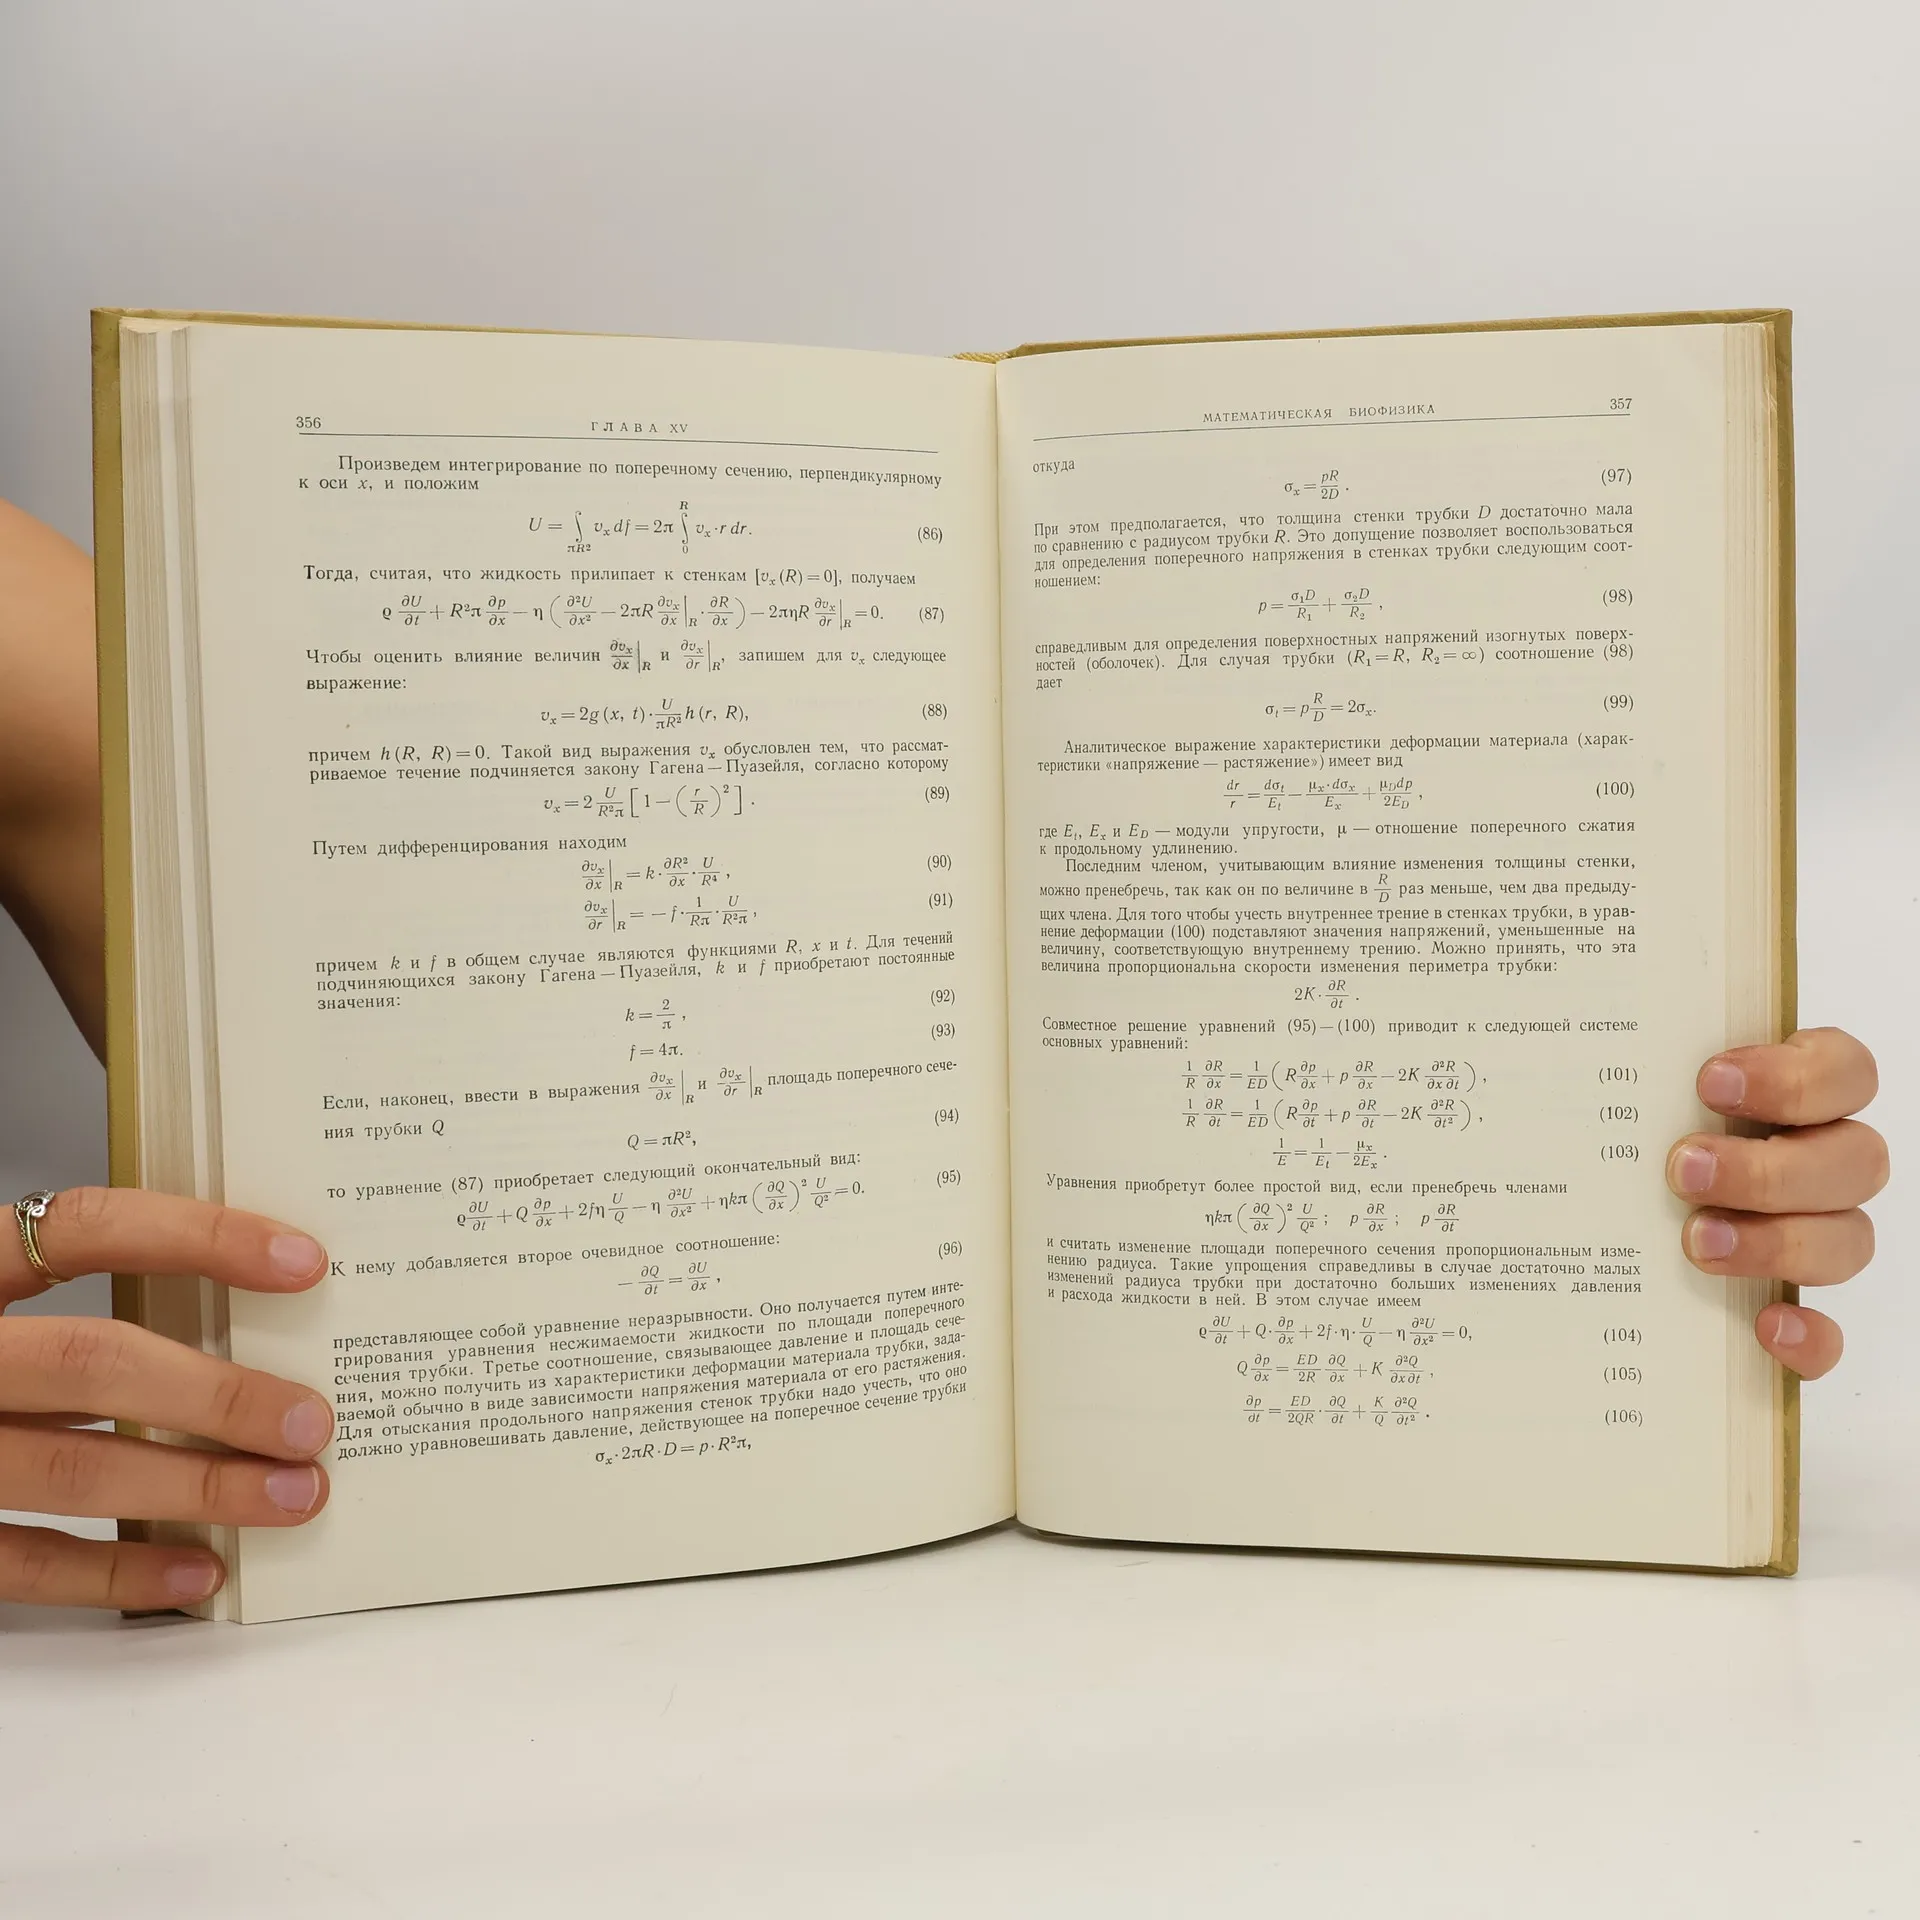 356
ГЛАВА XV
Произведем интегрирование по поперечному сечению, перпендикулярному
к оси x, и положим
U = ∫_{πR²} v_x df = 2π ∫_0^R v_x · r dr. (86)
Тогда, считая, что жидкость прилипает к стенкам [v_x (R) = 0], получаем
ϱ ∂U/∂t + R²π ∂p/∂x − η ( ∂²U/∂x² − 2πR ∂v_x/∂x |_R · ∂R/∂x ) − 2πηR ∂v_x/∂r |_R = 0. (87)
Чтобы оценить влияние величин ∂v_x/∂x |_R и ∂v_x/∂r |_R, запишем для v_x следующее
выражение:
v_x = 2g (x, t) · U/πR² h (r, R), (88)
причем h (R, R) = 0. Такой вид выражения v_x обусловлен тем, что рассмат-
риваемое течение подчиняется закону Гагена — Пуазейля, согласно которому
v_x = 2 U/R²π [ 1 − ( r/R )² ] . (89)
Путем дифференцирования находим
∂v_x/∂x |_R = k · ∂R²/∂x · U/R⁴ , (90)
∂v_x/∂r |_R = − f · 1/Rπ · U/R²π , (91)
причем k и f в общем случае являются функциями R, x и t. Для течений
подчиняющихся закону Гагена — Пуазейля, k и f приобретают постоянные
значения:
k = 2/π , (92)
f = 4π. (93)
Если, наконец, ввести в выражения ∂v_x/∂x |_R и ∂v_x/∂r |_R площадь поперечного сече-
ния трубки Q
Q = πR², (94)
то уравнение (87) приобретает следующий окончательный вид:
ϱ ∂U/∂t + Q ∂p/∂x + 2fη U/Q − η ∂²U/∂x² + ηkπ ( ∂Q/∂x )² U/Q² = 0. (95)
К нему добавляется второе очевидное соотношение:
− ∂Q/∂t = ∂U/∂x , (96)
представляющее собой уравнение неразрывности. Оно получается путем инте-
грирования уравнения несжимаемости жидкости по площади поперечного
сечения трубки. Третье соотношение, связывающее давление и площадь сече-
ния, можно получить из характеристики деформации материала трубки, зада-
ваемой обычно в виде зависимости напряжения материала от его растяжения.
Для отыскания продольного напряжения стенок трубки надо учесть, что оно
должно уравновешивать давление, действующее на поперечное сечение трубки
σ_x · 2πR · D = p · R²π,
МАТЕМАТИЧЕСКАЯ БИОФИЗИКА
357
откуда
σ_x = pR/2D . (97)
При этом предполагается, что толщина стенки трубки D достаточно мала
по сравнению с радиусом трубки R. Это допущение позволяет воспользоваться
для определения поперечного напряжения в стенках трубки следующим соот-
ношением:
p = σ₁D/R₁ + σ₂D/R₂ , (98)
справедливым для определения поверхностных напряжений изогнутых поверх-
ностей (оболочек). Для случая трубки (R₁ = R, R₂ = ∞) соотношение (98)
дает
σ_t = p R/D = 2σ_x. (99)
Аналитическое выражение характеристики деформации материала (харак-
теристики «напряжение — растяжение») имеет вид
dr/r = dσ_t/E_t − μ_x · dσ_x/E_x + μ_D dp/2E_D , (100)
где E_t, E_x и E_D — модули упругости, μ — отношение поперечного сжатия
к продольному удлинению.
Последним членом, учитывающим влияние изменения толщины стенки,
можно пренебречь, так как он по величине в R/D раз меньше, чем два предыду-
щих члена. Для того чтобы учесть внутреннее трение в стенках трубки, в урав-
нение деформации (100) подставляют значения напряжений, уменьшенные на
величину, соответствующую внутреннему трению. Можно принять, что эта
величина пропорциональна скорости изменения периметра трубки:
2K · ∂R/∂t .
Совместное решение уравнений (95) — (100) приводит к следующей системе
основных уравнений:
1/R ∂R/∂x = 1/ED ( R ∂p/∂x + p ∂R/∂x − 2K ∂²R/∂x ∂t ) , (101)
1/R ∂R/∂t = 1/ED ( R ∂p/∂t + p ∂R/∂t − 2K ∂²R/∂t² ) , (102)
1/E = 1/E_t − μ_x/2E_x . (103)
Уравнения приобретут более простой вид, если пренебречь членами
ηkπ ( ∂Q/∂x )² U/Q² ; p ∂R/∂x ; p ∂R/∂t
и считать изменение площади поперечного сечения пропорциональным изме-
нению радиуса. Такие упрощения справедливы в случае достаточно малых
изменений радиуса трубки при достаточно больших изменениях давления
и расхода жидкости в ней. В этом случае имеем
ϱ ∂U/∂t + Q · ∂p/∂x + 2f · η · U/Q − η ∂²U/∂x² = 0, (104)
Q ∂p/∂x = ED/2R ∂Q/∂x + K ∂²Q/∂x ∂t , (105)
∂p/∂t = ED/2QR · ∂Q/∂t + K/Q ∂²Q/∂t² . (106)